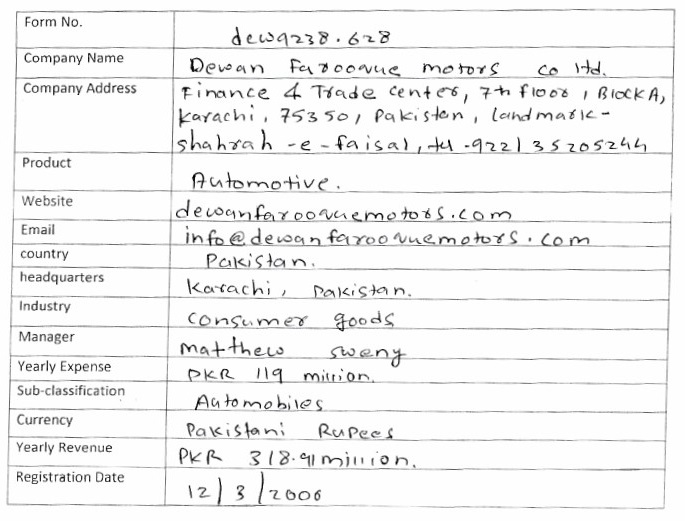 Form No. dewa238.628
Company Name Dewan Farooque motors co ltd.
Company Address Finance & Trade center, 7th floor, Block A,
Karachi, 75350, Pakistan, landmark-
shahrah -e- faisal, tel -9221 35205244
Product Automotive.
Website dewanfarooquemotors.com
Email info@dewanfarooquemotors.com
country Pakistan.
headquarters Karachi, Pakistan.
Industry consumer goods
Manager matthew sweny
Yearly Expense PKR 119 million.
Sub-classification Automobiles
Currency Pakistani Rupees
Yearly Revenue PKR 318.91 million.
Registration Date 12/3/2006